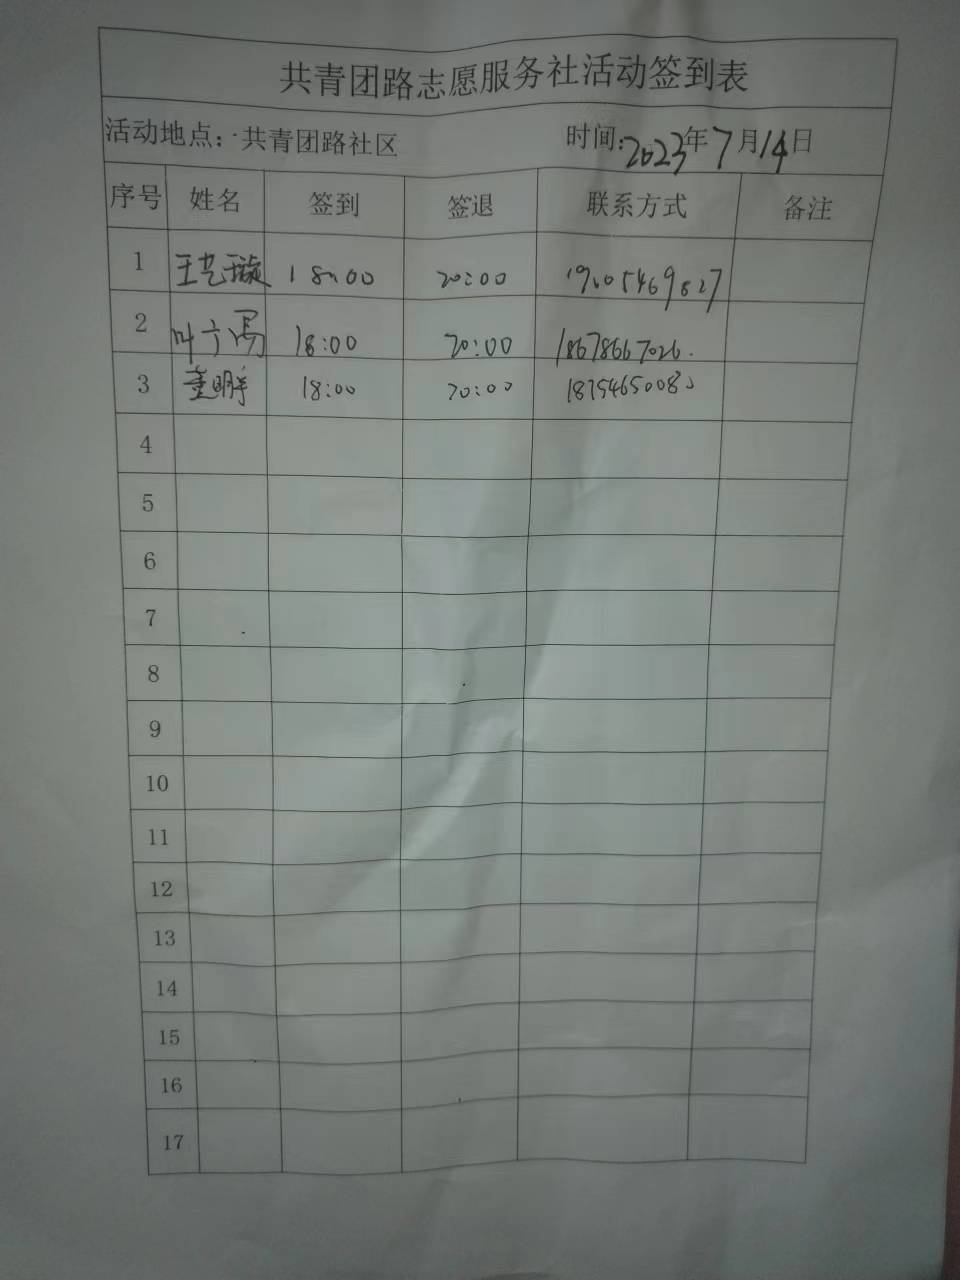 共青团路志愿服务社活动签到表
活动地点：共青团路社区 时间:2023年7月14日
序号 姓名 签到 签退 联系方式 备注
1 王艺璇 18:00 20:00
2 18:00 20:00 18678667026.
3 董明宇 18:00 20:00
4
5
6
7
8
9
10
11
12
13
14
15
16
17